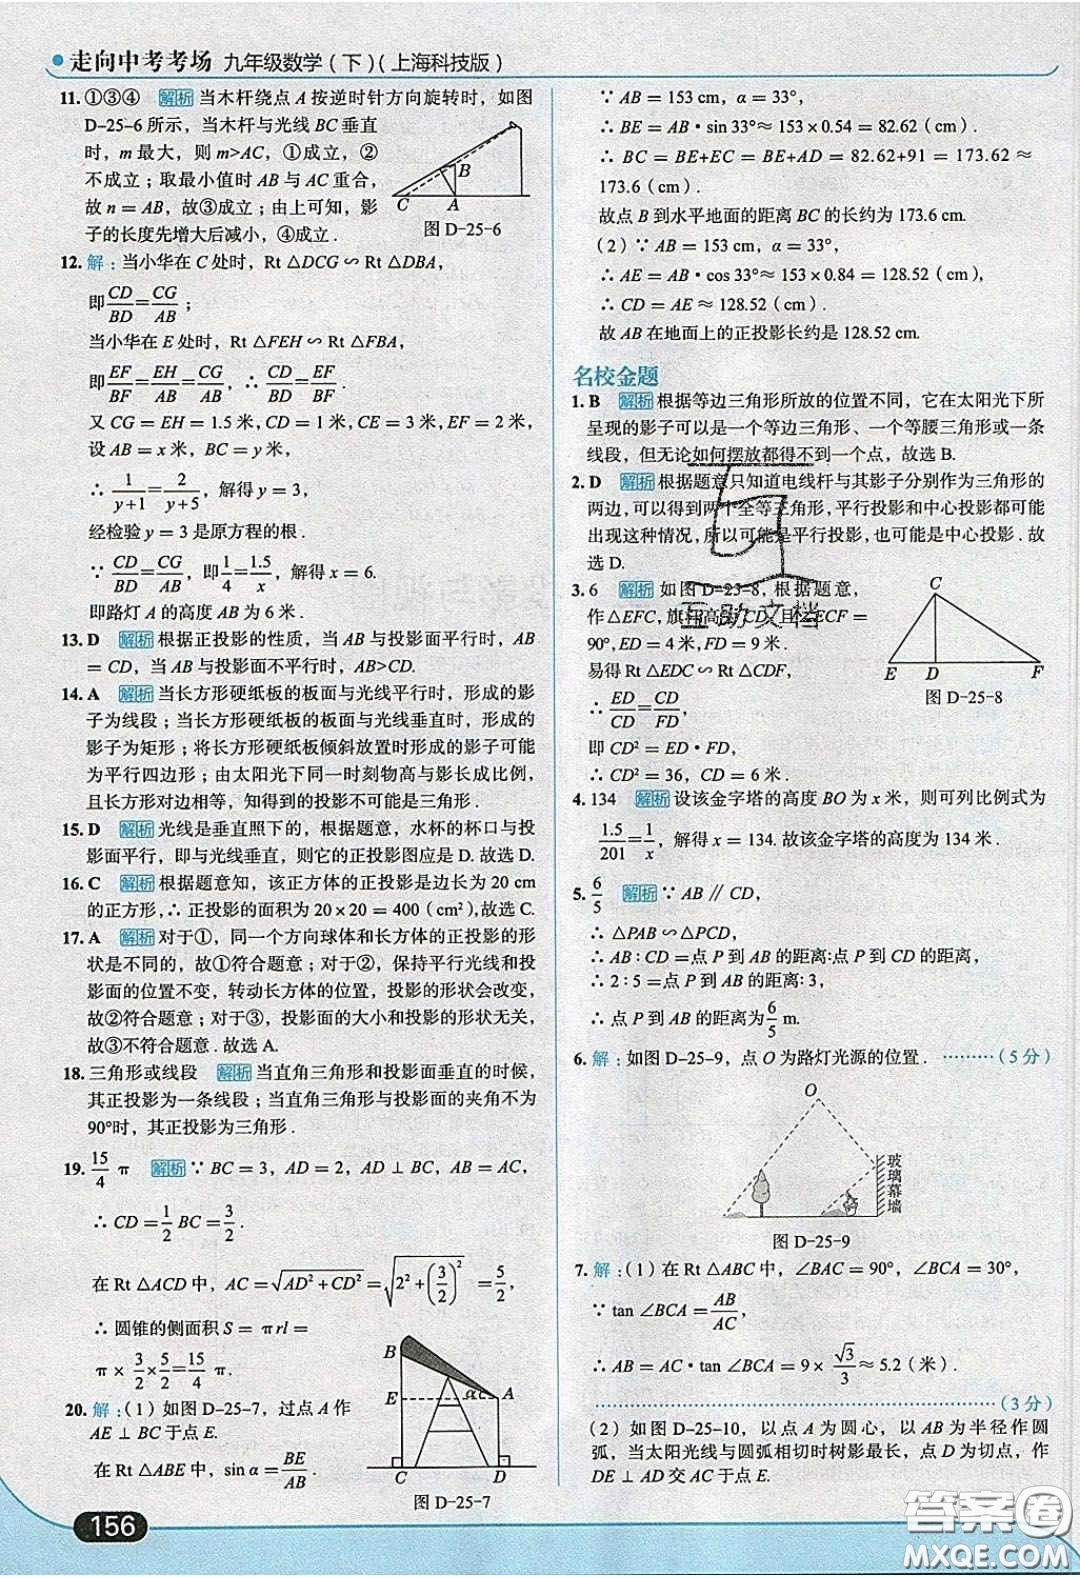 走向中考考场 九年级数学（下）（上海科技版）
11. ①③④ 解析 当木杆绕点 A 按逆时针方向旋转时，如图
D-25-6 所示，当木杆与光线 BC 垂直
时，m 最大，则 m>AC，①成立，②
不成立；取最小值时 AB 与 AC 重合，
故 n = AB，故③成立；由上可知，影
子的长度先增大后减小，④成立．
B
C
A
图 D-25-6
12. 解：当小华在 C 处时，Rt △DCG ∽ Rt △DBA，
即 CD/BD = CG/AB；
当小华在 E 处时，Rt △FEH ∽ Rt △FBA，
即 EF/BF = EH/AB = CG/AB，∴ CD/BD = EF/BF．
又 CG = EH = 1.5 米，CD = 1 米，CE = 3 米，EF = 2 米，
设 AB = x 米，BC = y 米，
∴ 1/(y+1) = 2/(y+5)，解得 y = 3，
经检验 y = 3 是原方程的根．
∵ CD/BD = CG/AB，即 1/4 = 1.5/x，解得 x = 6.
即路灯 A 的高度 AB 为 6 米．
13. D 解析 根据正投影的性质，当 AB 与投影面平行时，AB
= CD，当 AB 与投影面不平行时，AB>CD.
14. A 解析 当长方形硬纸板的板面与光线平行时，形成的影
子为线段；当长方形硬纸板的板面与光线垂直时，形成的
影子为矩形；将长方形硬纸板倾斜放置时形成的影子可能
为平行四边形；由太阳光下同一时刻物高与影长成比例，
且长方形对边相等，知得到的投影不可能是三角形．
15. D 解析 光线是垂直照下的，根据题意，水杯的杯口与投
影面平行，即与光线垂直，则它的正投影图应是 D. 故选 D.
16. C 解析 根据题意知，该正方体的正投影是边长为 20 cm
的正方形，∴ 正投影的面积为 20 × 20 = 400（cm²），故选 C.
17. A 解析 对于①，同一个方向球体和长方体的正投影的形
状是不同的，故①符合题意；对于②，保持平行光线和投
影面的位置不变，转动长方体的位置，投影的形状会改变，
故②符合题意；对于③，投影面的大小和投影的形状无关，
故③不符合题意．故选 A.
18. 三角形或线段 解析 当直角三角形和投影面垂直的时候，
其正投影为一条线段；当直角三角形与投影面的夹角不为
90°时，其正投影为三角形．
19. 15/4 π 解析 ∵ BC = 3，AD = 2，AD ⊥ BC，AB = AC，
∴ CD = 1/2 BC = 3/2.
在 Rt △ACD 中，AC = √(AD² + CD²) = √(2² + (3/2)²) = 5/2，
∴ 圆锥的侧面积 S = πrl =
π × 3/2 × 5/2 = 15/4 π．
20. 解：（1）如图 D-25-7，过点 A 作
AE ⊥ BC 于点 E.
在 Rt △ABE 中，sin α = BE/AB．
B
E
α
A
C
D
图 D-25-7
156
∵ AB = 153 cm，α = 33°，
∴ BE = AB · sin 33°≈ 153 × 0.54 = 82.62（cm）.
∴ BC = BE+EC = BE+AD = 82.62+91 = 173.62 ≈
173.6（cm）.
故点 B 到水平地面的距离 BC 的长约为 173.6 cm.
（2）∵ AB = 153 cm，α = 33°，
∴ AE = AB · cos 33°≈ 153 × 0.84 = 128.52（cm），
∴ CD = AE ≈ 128.52（cm）.
故 AB 在地面上的正投影长约是 128.52 cm.
名校金题
1. B 解析 根据等边三角形所放的位置不同，它在太阳光下所
呈现的影子可以是一个等边三角形、一个等腰三角形或一条
线段，但无论如何摆放都得不到一个点，故选 B.
2. D 解析 根据题意只知道电线杆与其影子分别作为三角形的
两边，可以得到两个全等三角形，平行投影和中心投影都可能
出现这种情况，所以可能是平行投影，也可能是中心投影．故
选 D.
3. 6 解析 如图 D-25-8，根据题意，
作 △EFC，旗杆高度 CD，且∠ECF =
90°，ED = 4 米，FD = 9 米．
易得 Rt △EDC ∽ Rt △CDF，
∴ ED/CD = CD/FD，
即 CD² = ED · FD，
∴ CD² = 36，CD = 6 米．
C
E
D
F
图 D-25-8
互助文档
4. 134 解析 设该金字塔的高度 BO 为 x 米，则可列比例式为
1.5/201 = 1/x，解得 x = 134. 故该金字塔的高度为 134 米．
5. 6/5 解析 ∵ AB ∥ CD，
∴ △PAB ∽ △PCD，
∴ AB : CD = 点 P 到 AB 的距离:点 P 到 CD 的距离，
∴ 2 : 5 = 点 P 到 AB 的距离: 3，
∴ 点 P 到 AB 的距离为 6/5 m.
6. 解：如图 D-25-9，点 O 为路灯光源的位置．………（5 分）
O
玻璃幕墙
图 D-25-9
7. 解：（1）在 Rt △ABC 中，∠BAC = 90°，∠BCA = 30°，
∵ tan ∠BCA = AB/AC，
∴ AB = AC · tan ∠BCA = 9 × √3/3 ≈ 5.2（米）.
……………………………（3 分）
（2）如图 D-25-10，以点 A 为圆心，以 AB 为半径作圆
弧，当太阳光线与圆弧相切时树影最长，点 D 为切点，作
DE ⊥ AD 交 AC 于点 E.
答案圈
MXQE.COM